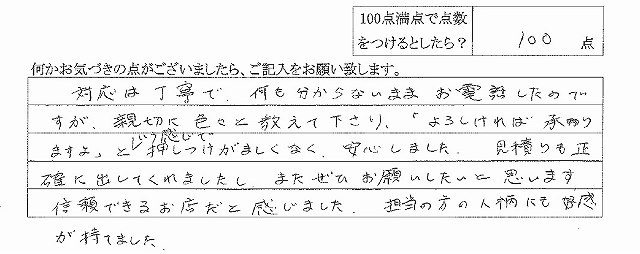 100点満点で点数
をつけるとしたら？ 100 点
何かお気づきの点がございましたら、ご記入をお願い致します。
対応は丁寧で、何も分からないまま お電話したので
すが、親切に色々と教えて下さり、「よろしければ 承わり
ますよ」という感じで押しつけがましくなく、安心しました。見積りも正
確に出してくれましたし またぜひ お願いしたいと思います
信頼できるお店だと感じました。担当の方の人柄にも好感
が持てました。